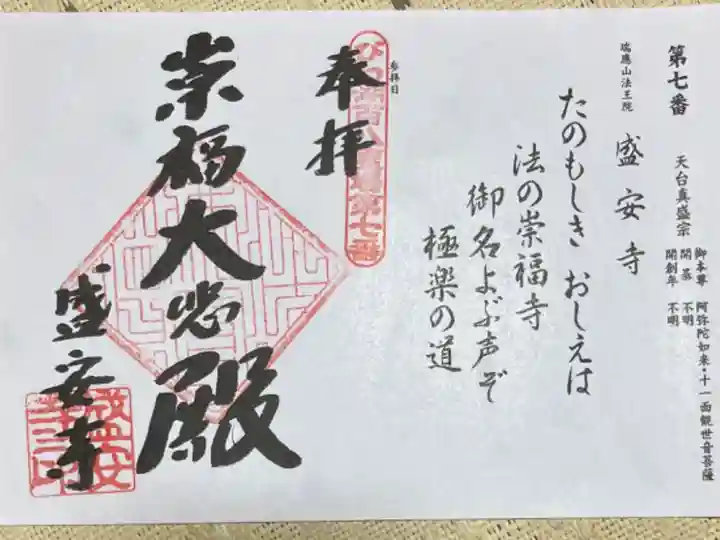 第七番
天台真盛宗
御本尊 阿弥陀如来・十一面観世音菩薩
開基 不明
開創年 不明
瑞應山法王院
盛安寺
たのもしき おしえは
法の崇福寺
御名よぶ声ぞ
極楽の道
参拝日
奉拝
びわ湖百八霊場第七番
崇福大悲殿
盛安寺